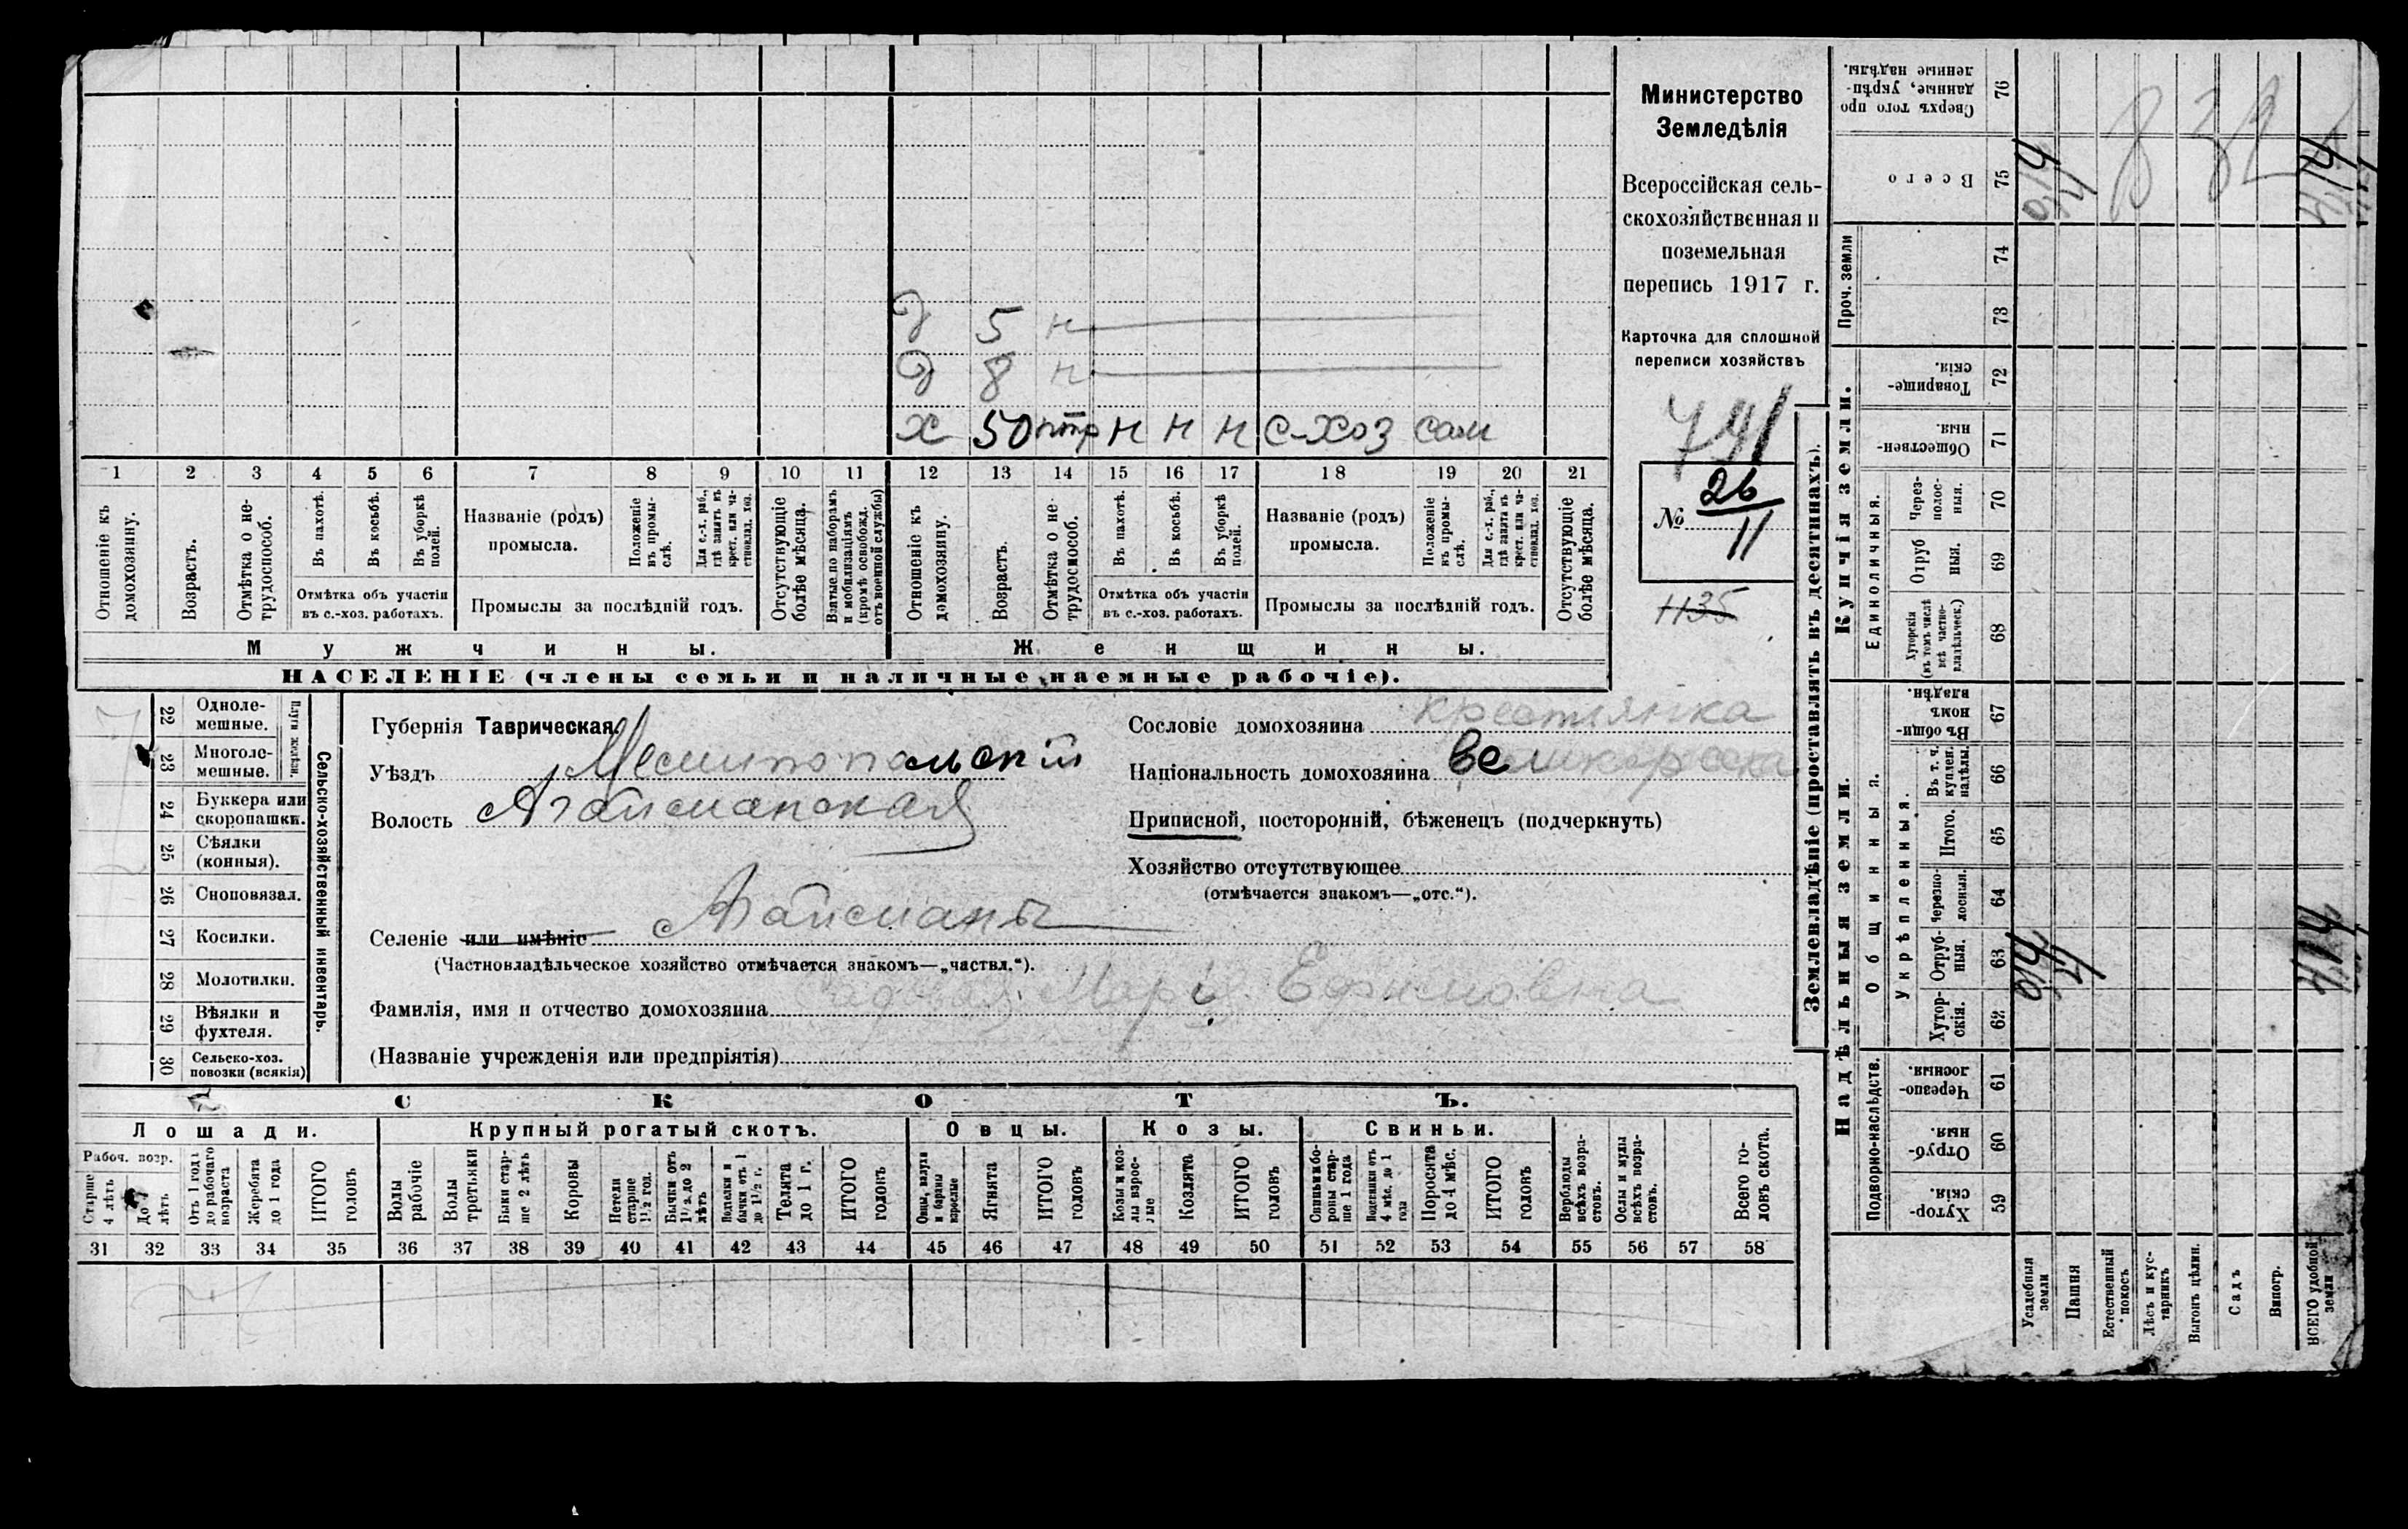 Министерство
Земледѣлія
Всероссійская сель-
скохозяйственная и
поземельная
перепись 1917 г.
Карточка для сплошной
переписи хозяйствъ
741
№ 26/11
1135
д 5 н
д 8 н
х 50 н н н с-хоз сам
1 2 3 4 5 6 7 8 9 10 11 12 13 14 15 16 17 18 19 20 21
Отношеніе къ домохозяину.
Возрастъ.
Отмѣтка о не-трудоспособ.
Въ пахотѣ.
Въ косьбѣ.
Въ уборкѣ полей.
Отмѣтка объ участіи
въ с.-хоз. работахъ.
Названіе (родъ)
промысла.
Положеніе въ промы-слѣ.
Для с.-х. раб., гдѣ занятъ въ крест. или ча-стновлад. хоз.
Промыслы за послѣдній годъ.
Отсутствующіе болѣе мѣсяца.
Взятые по наборамъ и мобилизаціямъ (кромѣ освобожд. отъ военной службы)
Отношеніе къ домохозяину.
Возрастъ.
Отмѣтка о не-трудоспособ.
Въ пахотѣ.
Въ косьбѣ.
Въ уборкѣ полей.
Отмѣтка объ участіи
въ с.-хоз. работахъ.
Названіе (родъ)
промысла.
Положеніе въ промы-слѣ.
Для с.-х. раб., гдѣ занята въ крест. или ча-стновлад. хоз.
Промыслы за послѣдній годъ.
Отсутствующіе болѣе мѣсяца.
Мужчины.
Женщины.
НАСЕЛЕНІЕ (члены семьи и наличные наемные рабочіе).
22 Одноле-мешные.
23 Многоле-мешные.
Плуги желѣзн.
24 Буккера или скоропашки.
25 Сѣялки (конныя).
26 Сноповязал.
27 Косилки.
28 Молотилки.
29 Вѣялки и фухтеля.
30 Сельско-хоз. повозки (всякія)
Сельско-хозяйственный инвентарь.
Губернія Таврическая.
Уѣздъ Мелитопольскій
Волость Агайманская
Селеніе или имѣніе Агайманы
(Частновладѣльческое хозяйство отмѣчается знакомъ—„частвл.“).
Фамилія, имя и отчество домохозяина Марія Ефимовна
(Названіе учрежденія или предпріятія)
Сословіе домохозяина крестьянка
Національность домохозяина великоросска
Приписной, посторонній, бѣженецъ (подчеркнуть)
Хозяйство отсутствующее
(отмѣчается знакомъ—„отс.“).
СКОТЪ.
Лошади.
Крупный рогатый скотъ.
Овцы.
Козы.
Свиньи.
Рабоч. возр.
Старше 4 лѣтъ
До 4 лѣтъ
Отъ 1 года до рабочаго возраста
Жеребята до 1 года
ИТОГО головъ
Волы рабочіе
Волы третьяки
Быки стар-ше 2 лѣтъ
Коровы
Нетели старше 1½ год.
Бычки отъ 1½ г. до 2 лѣтъ
Подтелки и бычки отъ 1 до 1½ г.
Телята до 1 г.
ИТОГО головъ
Овцы, валухи и бараны взрослые
Ягнята
ИТОГО головъ
Козы и коз-лы взрос-лые
Козлята
ИТОГО головъ
Свиньи и бо-ровы стар-ше 1 года
Подсвинки отъ 4 мѣс. до 1 года
Поросята до 4 мѣс.
ИТОГО головъ
Верблюды всѣхъ возра-стовъ.
Ослы и мулы всѣхъ возра-стовъ.
Всего го-ловъ скота.
31 32 33 34 35 36 37 38 39 40 41 42 43 44 45 46 47 48 49 50 51 52 53 54 55 56 57 58
Землевладѣніе (проставлять въ десятинахъ).
Сверхъ того про-данные, укрѣп-ленные надѣлы. 76
Всего 75
Проч. земли
74
73
Купчія земли.
Товарище-скія. 72
Обществен-ныя. 71
Единоличныя.
Через-полос-ныя. 70
Отруб-ныя. 69
Хуторскія (въ томъ числѣ всѣ частно-владѣльческ.) 68
Надѣльныя земли.
Общинныя.
Въ общи-номъ владѣн. 67
Укрѣпленныя.
Въ т. ч. куплен. надѣлы. 66
Итого. 65
Черезпо-лосныя. 64
Отруб-ныя. 63
Хутор-скія. 62
Подворно-наслѣдств.
Черезпо-лосныя. 61
Отруб-ныя. 60
Хутор-скія. 59
Усадебныя земли
Пашня
Естественный покосъ
Лѣсъ и кус-тарникъ
Выгонъ цѣлин.
Садъ
Виногр.
ВСЕГО удобной земли